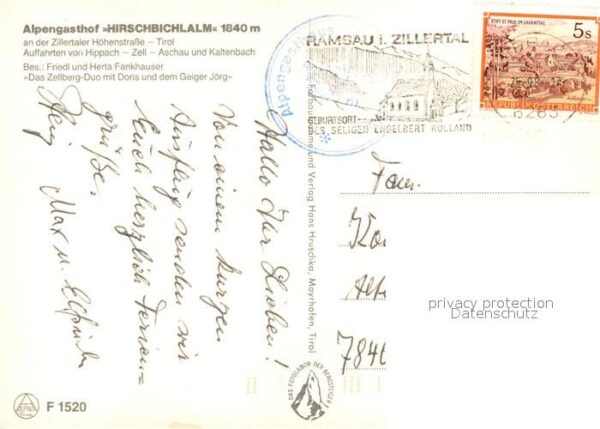 Alpengasthof »HIRSCHBICHLALM« 1840 m
an der Zillertaler Höhenstraße – Tirol
Auffahrten von Hippach – Zell – Aschau und Kaltenbach
Bes.: Friedl und Herta Fankhauser
»Das Zellberg-Duo mit Doris und dem Geiger Jörg«
Hallo Ihr Lieben!
Von einem kurzen
Ausflug senden wir
Euch herzlich Ferien-
grüße.
Max u.
F 1520
Verlag Hans Hruschka, Mayrhofen, Tirol
DAS FOTOLABOR DER BERGSTEIGER
RAMSAU i. ZILLERTAL
GEBURTSORT
DES SELIGEN ENGELBERT KOLLAND
STIFT ST. PAUL IM LAVANTTAL
5s
REPUBLIK ÖSTERREICH
Fam.
784
privacy protection
Datenschutz